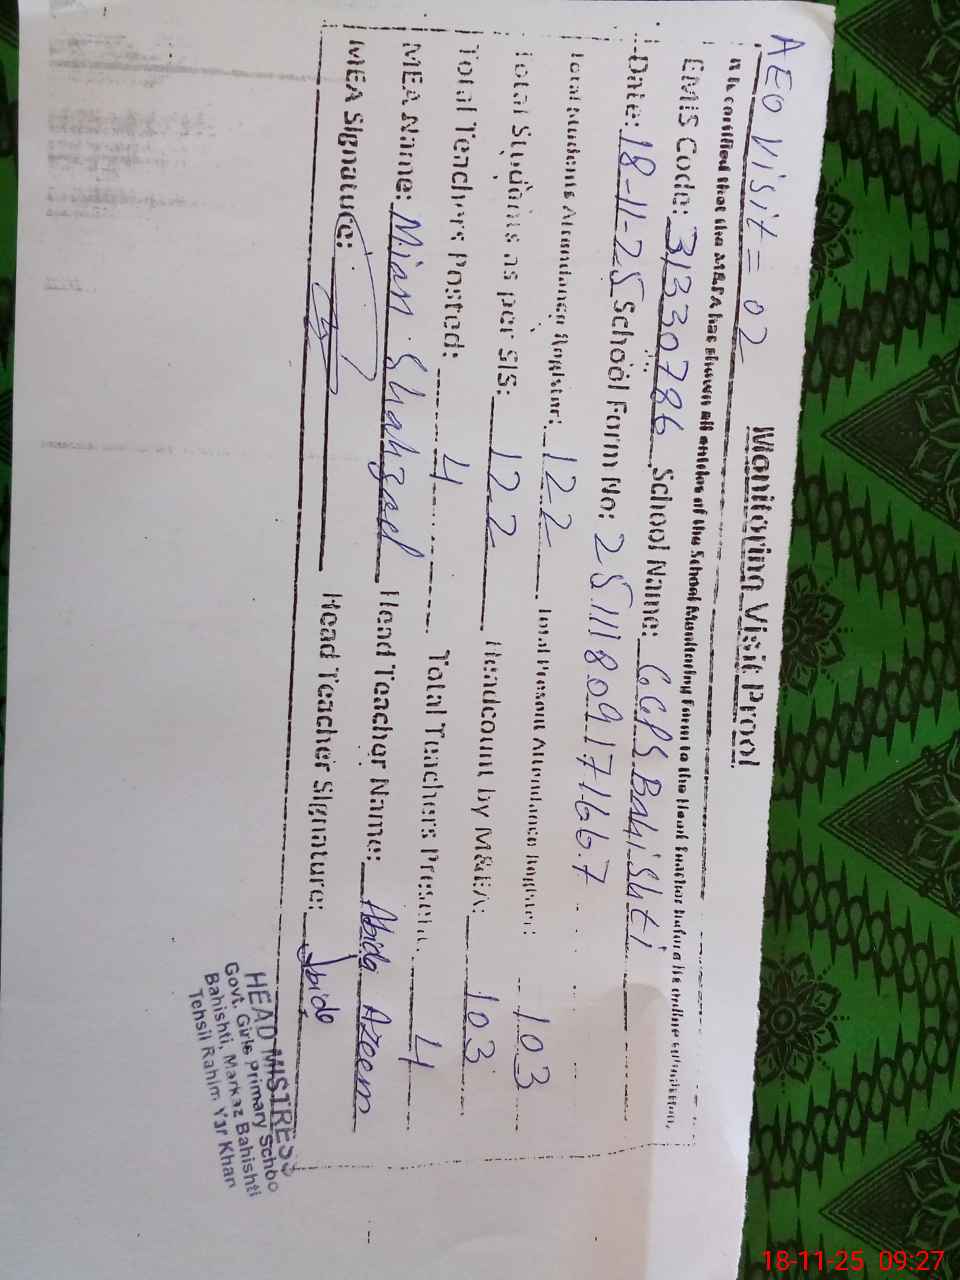 AEO Visit = 02
Monitoring Visit Proof
It is certified that the M&EA has shown all entries of the School Monitoring Form to the Head Teacher before its online submission.
EMIS Code: 31330786 School Name: GGPS Bahishti
Date: 18-11-25 School Form No: 25111809171667
Total Students Attendance Register: 122 Total Present Attendance Register: 103
Total Students as per SIS: 122 Headcount by M&EA: 103
Total Teachers Posted: 4 Total Teachers Present: 4
MEA Name: Mian Shahzad Head Teacher Name: Abida Azeem
MEA Signature: Head Teacher Signature: Abida
HEAD MISTRESS
Govt. Girls primary Schoo
Bahishti, Markaz Bahishti
Tehsil Rahim Yar Khan
18-11-25 09:27